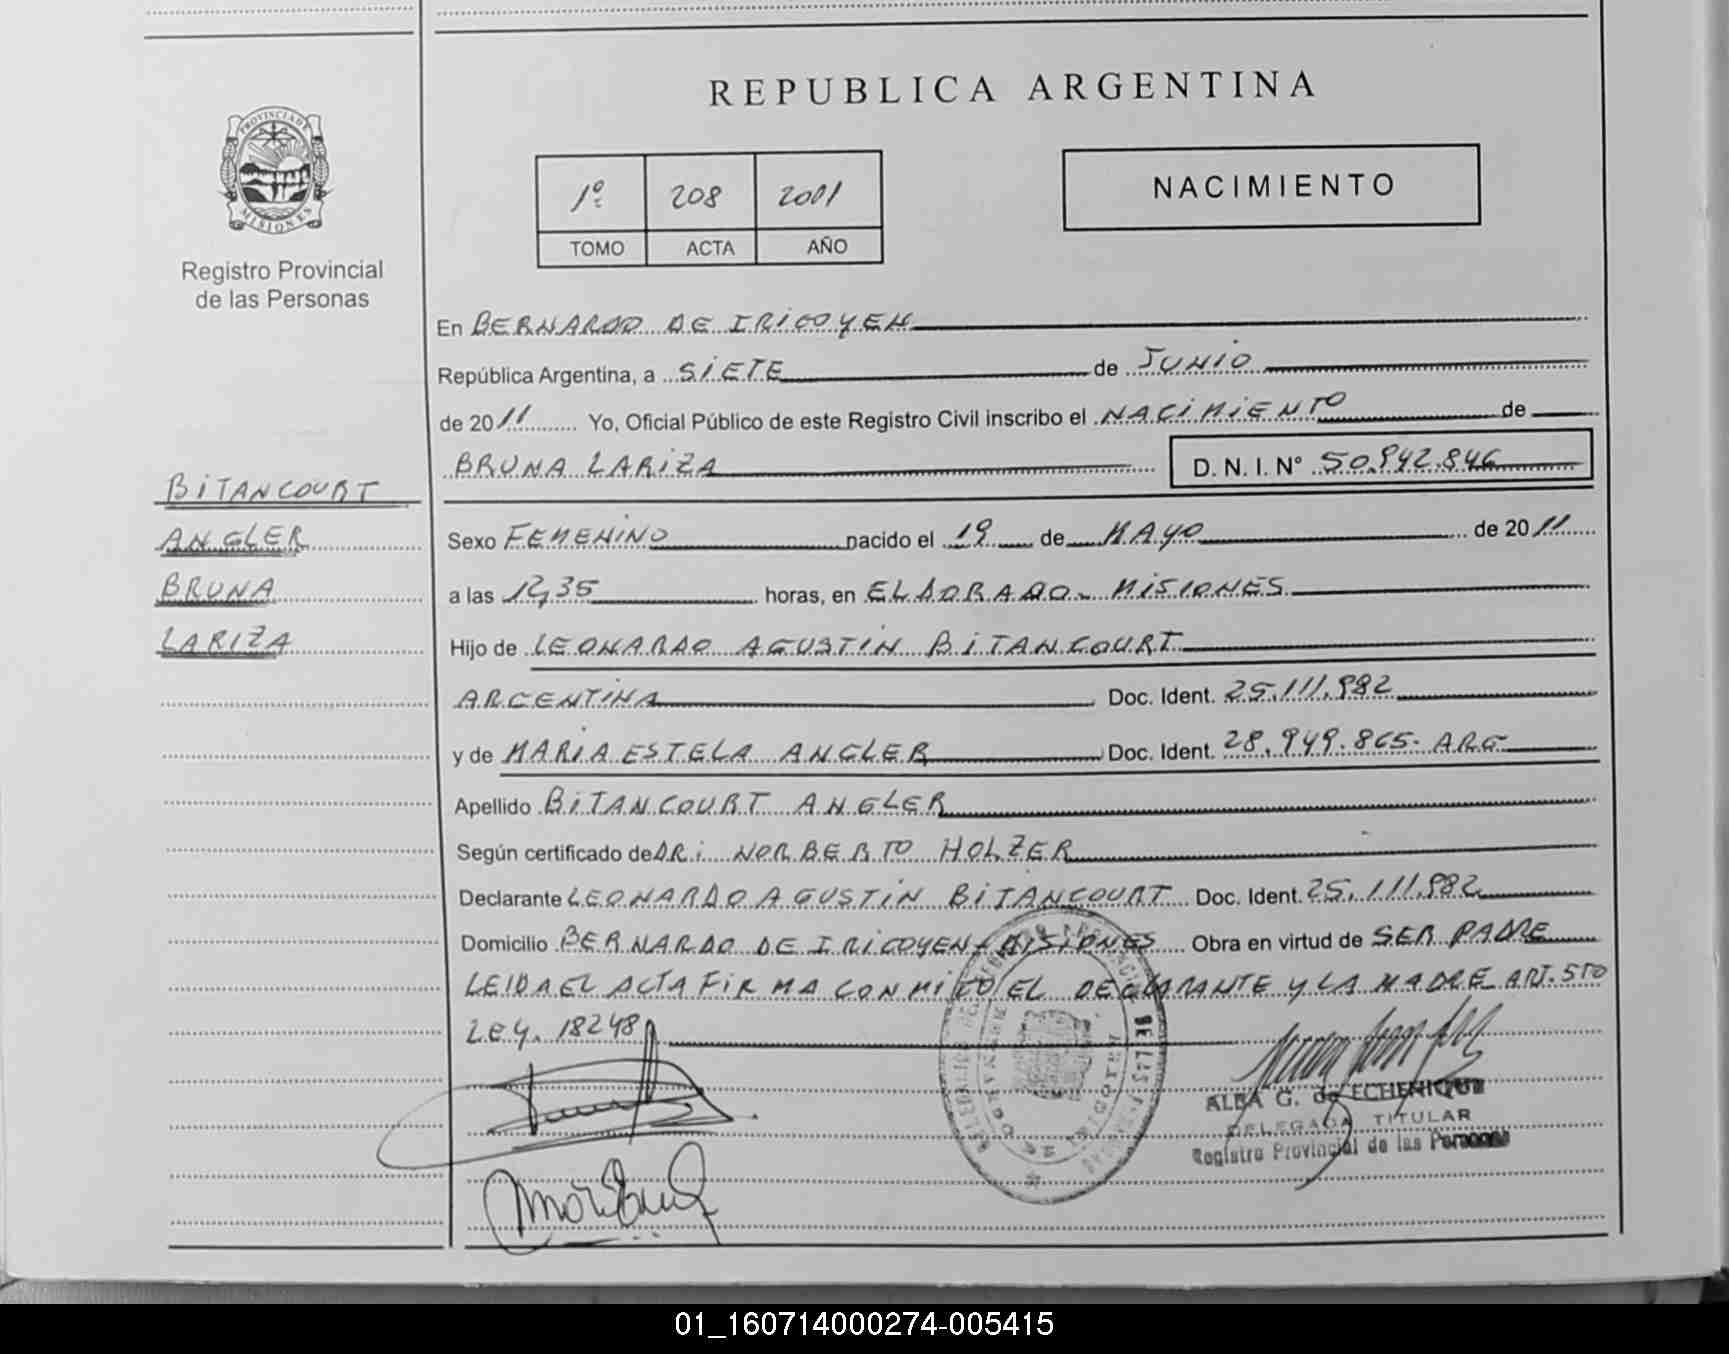 REPUBLICA ARGENTINA
PROVINCIA DE
MISIONES
Registro Provincial
de las Personas
1º 208 2001
TOMO ACTA AÑO
NACIMIENTO
En BERNARDO DE IRIGOYEN
República Argentina, a SIETE de JUNIO
de 2011 Yo, Oficial Público de este Registro Civil inscribo el NACIMIENTO de
BRUNA LARIZA D. N. I. Nº 50.942.846
BITANCOURT
ANGLER
BRUNA
LARIZA
Sexo FEMENINO nacido el 19 de MAYO de 2011
a las 12,35 horas, en ELDORADO - MISIONES
Hijo de LEONARDO AGUSTIN BITANCOURT
ARGENTINA Doc. Ident. 25.111.982
y de MARIA ESTELA ANGLER Doc. Ident. 28.949.865- ARG
Apellido BITANCOURT ANGLER
Según certificado de DR. NORBERTO HOLZER
Declarante LEONARDO AGUSTIN BITANCOURT Doc. Ident. 25.111.982
Domicilio BERNARDO DE IRIGOYEN - MISIONES Obra en virtud de SER PADRE
LEIDA EL ACTA FIRMA CONMIGO EL DECLARANTE Y LA MADRE ART. 5TO
LEY. 18248
ALBA G. de ECHENIQUE
DELEGADA TITULAR
Registro Provincial de las Personas
01_160714000274-005415